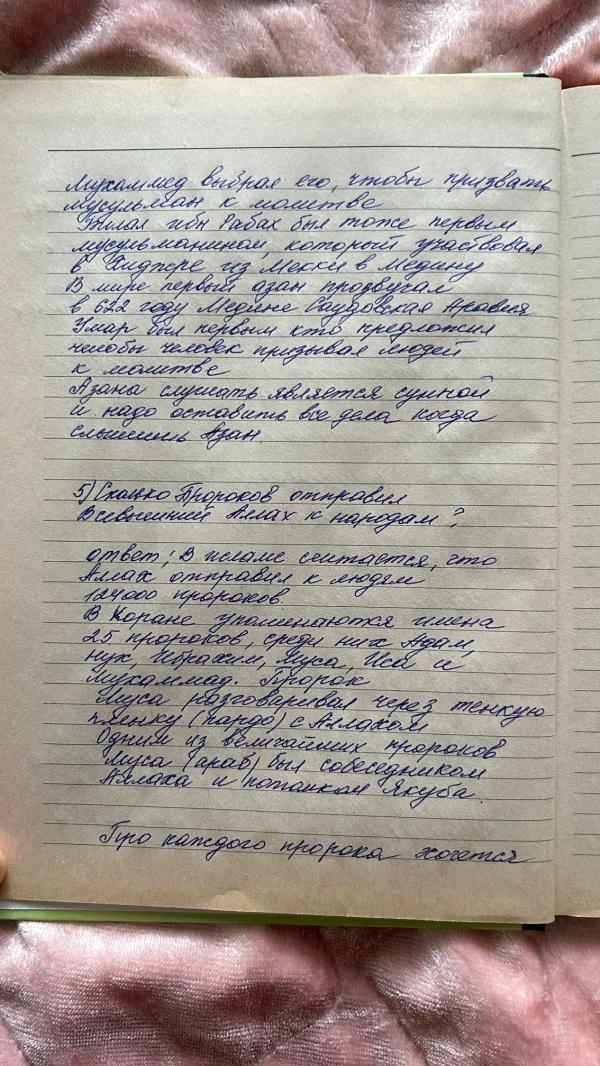 Мухаммед выбрал его, чтобы призвать
мусульман к молитве
Билал ибн Рабах был тоже первым
мусульманином, который участвовал
в Хиджре из Мекки в Медину
В мире первый азан прозвучал
в 622 году Медине Саудовская Аравия
Умар был первым кто предложил
чтобы человек призывал людей
к молитве
Азана слушать является сунной
и надо оставить все дела когда
слышишь Азан
5) Сколько Пророков отправил
Всевышний Аллах к народам?
ответ; В исламе считается, что
Аллах отправил к людям
124000 пророков.
В Коране упоминаются имена
25 пророков, среди них Адам,
нух, Ибрахим, Муса, Иса и
Мухаммад. Пророк
Муса разговаривал через тенкую
пленку (пардо) с Аллахом
Одним из величайших пророков
Муса (араб) был собеседником
Аллаха и потомком Якуба.
Про каждого пророка хочется